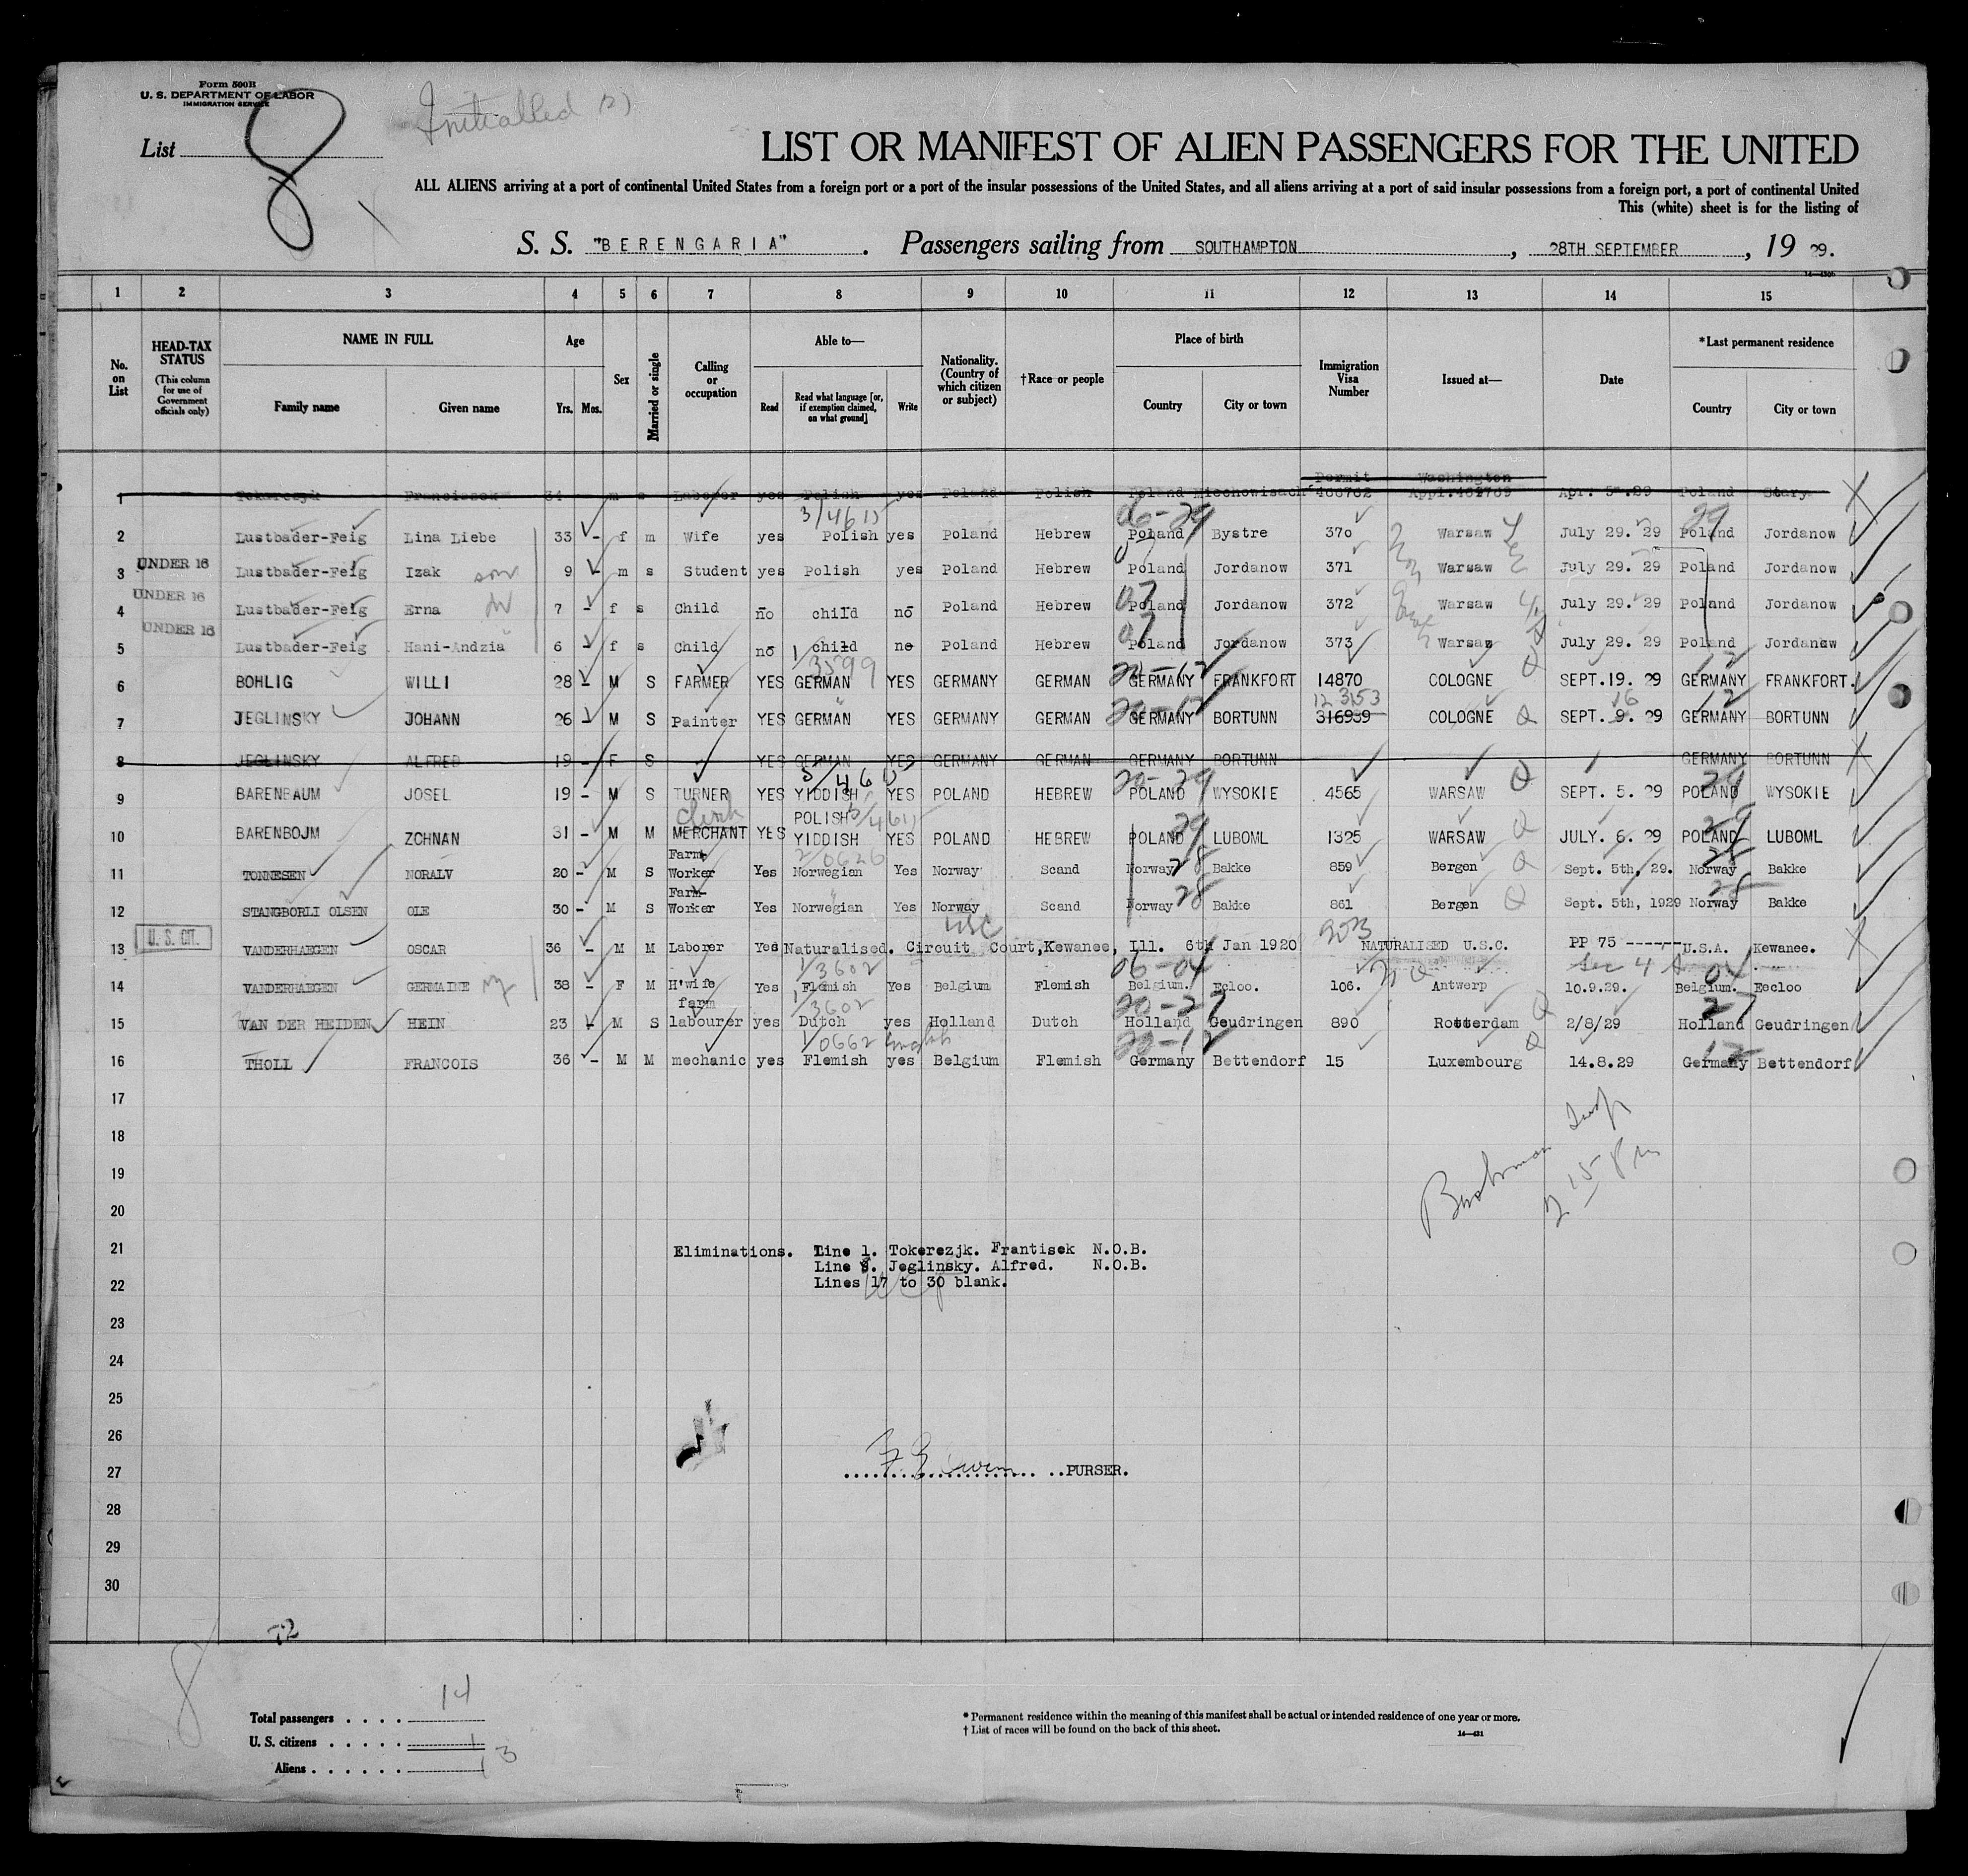 Form 500B
U. S. DEPARTMENT OF LABOR
IMMIGRATION SERVICE
List 8
Initialled (2)
LIST OR MANIFEST OF ALIEN PASSENGERS FOR THE UNITED
ALL ALIENS arriving at a port of continental United States from a foreign port or a port of the insular possessions of the United States, and all aliens arriving at a port of said insular possessions from a foreign port, a port of continental United
This (white) sheet is for the listing of
S. S. "BERENGARIA". Passengers sailing from SOUTHAMPTON, 28TH SEPTEMBER, 19 29.
1 2 3 4 5 6 7 8 9 10 11 12 13 14 15
No. on List
HEAD-TAX STATUS (This column for use of Government officials only)
NAME IN FULL Family name Given name
Age Yrs. Mos.
Sex
Married or single
Calling or occupation
Able to— Read Read what language [or, if exemption claimed, on what ground] Write
Nationality. (Country of which citizen or subject)
†Race or people
Place of birth Country City or town
Immigration Visa Number
Issued at—
Date
*Last permanent residence Country City or town
Permit Washington
1 Tokarczyk Franciszek 34 m s Laborer yes Polish yes Poland Polish Poland Miechowisach Appl. Apr. 5.29 Poland Stary
3/4615 06-29 29
2 Lustbader-Feig Lina Liebe 33 - f m Wife yes Polish yes Poland Hebrew Poland Bystre 370 Warsaw July 29. 29 Poland Jordanow
3 UNDER 16 Lustbader-Feig Izak son 9 - m s Student yes Polish yes Poland Hebrew Poland Jordanow 371 Warsaw July 29. 29 Poland Jordanow
4 UNDER 16 Lustbader-Feig Erna 7 - f s Child no child no Poland Hebrew Poland Jordanow 372 Warsaw July 29. 29 Poland Jordanow
5 UNDER 16 Lustbader-Feig Hani-Andzia 6 - f s Child no child no Poland Hebrew Poland Jordanow 373 Warsaw July 29. 29 Poland Jordanow
1/3599 20-12 12
6 BOHLIG WILLI 28 - M S FARMER YES GERMAN YES GERMANY GERMAN GERMANY FRANKFORT 14870 COLOGNE SEPT. 19. 29 GERMANY FRANKFORT.
" 20-12 12 3153 16 12
7 JEGLINSKY JOHANN 26 - M S Painter YES GERMAN YES GERMANY GERMAN GERMANY BORTUNN 316959 COLOGNE SEPT. 9. 29 GERMANY BORTUNN
8 JEGLINSKY ALFRED 19 - F S YES GERMAN YES GERMANY GERMAN GERMANY BORTUNN GERMANY BORTUNN
20-29 29
9 BARENBAUM JOSEL 19 - M S TURNER YES YIDDISH YES POLAND HEBREW POLAND WYSOKIE 4565 WARSAW SEPT. 5. 29 POLAND WYSOKIE
Clerk POLISH 29 29
10 BARENBOJM ZCHNAN 31 - M M MERCHANT YES YIDDISH YES POLAND HEBREW POLAND LUBOML 1325 WARSAW JULY. 6. 29 POLAND LUBOML
Farm 28 28
11 TONNESEN NORALV 20 - M S Worker Yes Norwegian Yes Norway Scand Norway Bakke 859 Bergen Sept. 5th, 29. Norway Bakke
Farm 28 28
12 STANGBORLI OLSEN OLE 30 - M S Worker Yes Norwegian Yes Norway Scand Norway Bakke 861 Bergen Sept. 5th, 1929 Norway Bakke
U. S. CIT. USC
13 VANDERHAEGEN OSCAR 36 - M M Laborer Yes Naturalised. Circuit Court, Kewanee, Ill. 6th Jan 1920 NATURALISED U.S.C. PP 75 ------ U.S.A. Kewanee.
1/3602 06-04 Sec 4 04
14 VANDERHAEGEN GERMAINE 38 - F M H'wife Yes Flemish Yes Belgium Flemish Belgium. Ecloo. 106. Antwerp 10.9.29. Belgium. Eecloo
farm 1/3602 20-27 27
15 VAN DER HEIDEN HEIN 23 - M S labourer yes Dutch yes Holland Dutch Holland Geudringen 890 Rotterdam 2/8/29 Holland Geudringen
1/0662 English 20-12 12
16 THOLL FRANCOIS 36 - M M mechanic yes Flemish yes Belgium Flemish Germany Bettendorf 15 Luxembourg 14.8.29 Germany Bettendorf
17
18
19
20
21
22
23
24
25
26
27
28
29
30
Eliminations. Line 1. Tokerezjk. Frantisek N.O.B.
Line 8. Jeglinsky. Alfred. N.O.B.
Lines 17 to 30 blank.
PURSER.
8
Total passengers . . . . 14
U. S. citizens . . . . . 1
Aliens . . . . . . 13
* Permanent residence within the meaning of this manifest shall be actual or intended residence of one year or more.
† List of races will be found on the back of this sheet.
14—431